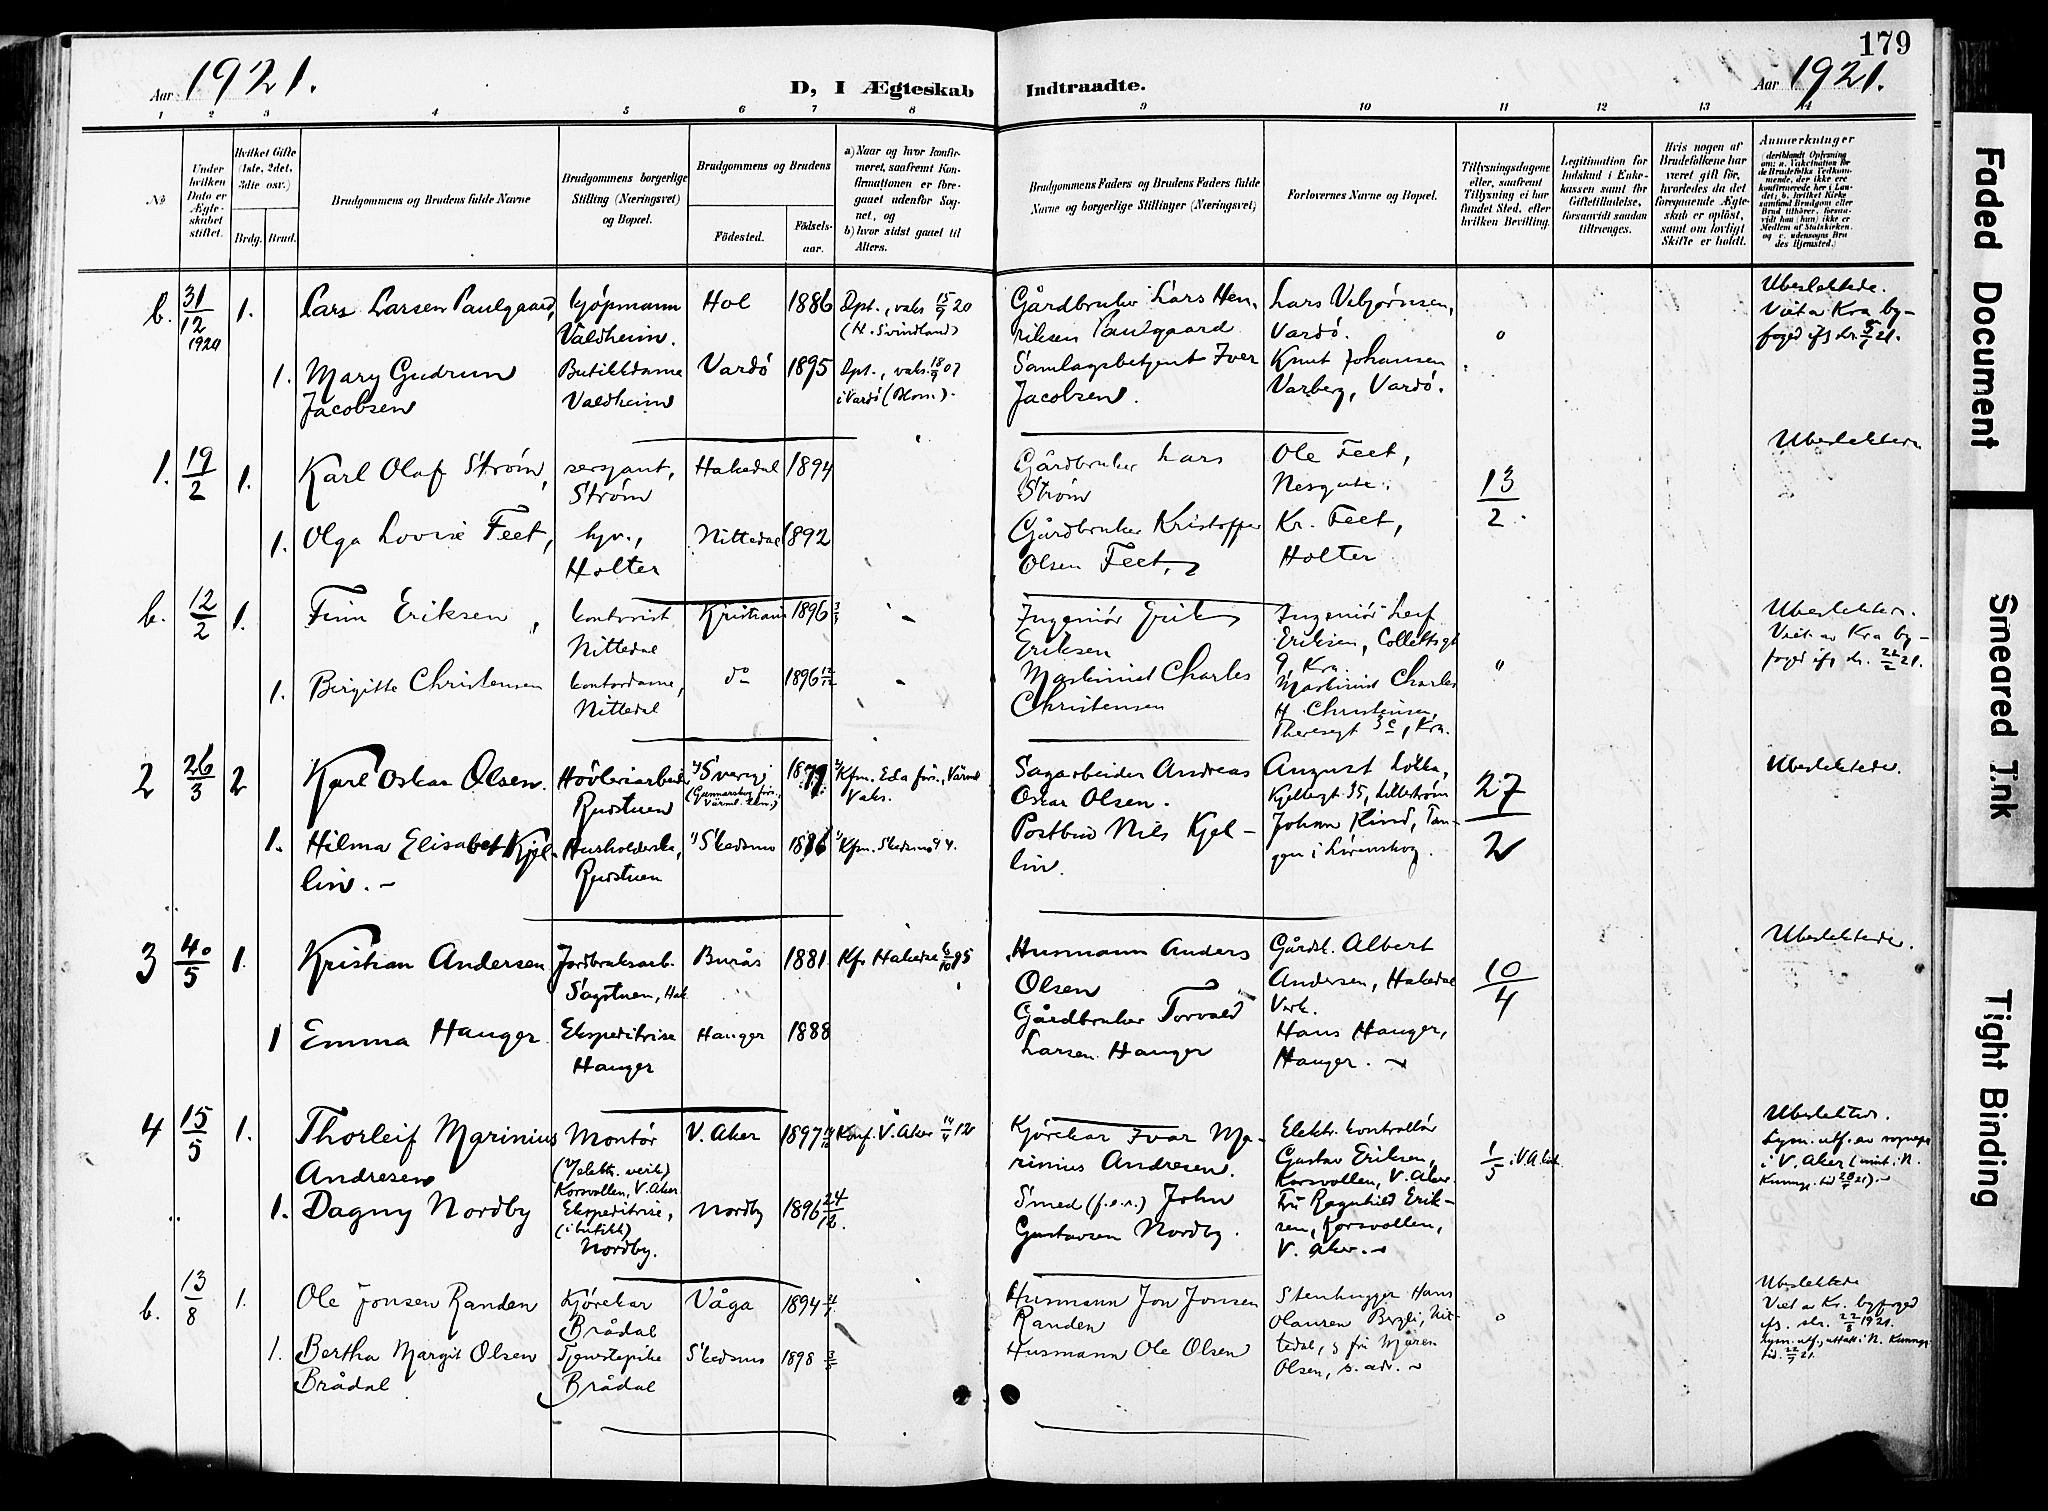 179
Aar 1921.
D, I Ægteskab Indtraadte.
Aar 1921.
1 2 3 4 5 6 7 8 9 10 11 12 13 14
No
Under hvilken Dato er Ægteskabet stiftet.
Hvilket Gifte (1ste, 2det, 3die osv.)
Brdg. Brud.
Brudgommens og Brudens fulde Navne
Brudgommens borgerlige Stilling (Næringsvei) og Bopæl.
Brudgommens og Brudens
Fødested.
Fødselsaar.
a) Naar og hvor konfirmeret, saafremt Konfirmationen er foregaaet udenfor Sognet, og
b) hvor sidst gaaet til Alters.
Brudgommens Faders og Brudens Faders fulde Navne og borgerlige Stillinger (Næringsvei)
Forlovernes Navne og Bopæl.
Tillysningsdagene eller, saafremt Tillysning ei har fundet Sted, efter hvilken Bevilling.
Legitimation for Indskud i Enkekassen samt for Giftetilladelse, forsaavidt saadan tiltrænges.
Hvis nogen af Brudefolkene har været gift før, hvorledes da det foregaaende Ægteskab er opløst, samt om lovligt Skifte er holdt.
Anmærkninger
(deriblandt Oplysning om: a. Vakcination for de Brudefolks Vedkommende, der ikke ere konfirmerede her i Landet; b. hvilket Kirkesamfund Brudgom eller Brud tilhører, forsaavidt han (hun) ikke er Medlem af Statskirken, og c. udensogns Brudes Hjemsted.)
b. 31/12 1920 1. Lars Larsen Paulgaard, kjøpmann Valdheim. Hol 1886 Dpt., vaks 15/9 20 (H. Svindland)
Gårdbruker Lars Henriksen Paulgaard
Lars Vebjørnsen, Vardø.
Ubeslektede. Viet av Kra byfoged ifg. skr. 5/1 21.
1. Mary Gudrun Jacobsen Butikkdame Valdheim Vardø 1895 Dpt., vaks. 18/9 07 i Vardø (Blom.).
Samlagsbetjent Iver Jacobsen.
Knut Johansen Varberg, Vardø.
1. 19/2 1. Karl Olaf Strøm, sersjant, Strøm Hakedal 1894
Gårdbruker Lars Strøm
Ole Feet, Nesgate.
13/2.
Ubeslektede
1. Olga Lovise Feet, hjv., Holter Nittedal 1892
Gårdbruker Kristoffer Olsen Feet,
Kr. Feet, Holter
b. 12/2 1. Finn Eriksen, kontorist Nittedal Kristiania 1896
Ingeniør Erik Eriksen
Ingeniør Leif Eriksen, Collettsgt 9, Kra.
Ubeslektede. Viet av Kra byfoged ifg skr. 22/2 21.
1. Birgitte Christensen kontordame, Nittedal do 1896 12/12
Maskinist Charles Christensen
Maskinist Charles H. Christensen, Theresegt 3c, Kra.
2 26/3 2 Karl Oskar Olsen. Høvleriarbeid. Rustuen Sverig (Gunnarskog förs., Värml. län.) 1871 Kfm. Eda förs., Värml Vaks.
Sagarbeider Andreas Oskar Olsen.
August Lökka, Kjellergt 35, Lillestrøm
27/2
Ubeslektede.
1. Hilma Elisabet Kjellin. Husholderske, Rustuen Skedsmo Kfm. Skedsmo 94.
Postbud Nils Kjellin.
Johan Kind, Tangen i Lørenskog.
3 4/5 1. Kristian Andersen Jordbruksarb. Sagstuen, Hak. Burås 1881. Kf. Hakedal 6/10 95
Husmann Anders Olsen
Gårdbr. Albert Andersen, Hakedal Verk.
10/4
Ubeslektede.
1 Emma Hauger Ekspeditrise Hauger Hauger 1888
Gårdbruker Torvald Larsen Hauger
Hans Hauger, Hauger.
4 15/5 1. Thorleif Marinius Andresen Montør (v/elektr. verk) Korsvollen, V. Aker. V. Aker 1897 Konf. V. Aker 14/4 12
Kjørekar Ivar Marinius Andresen.
Elektr. kontrollør Gustav Eriksen, Korsvollen, V. Aker.
1/5 i V. Aker
Ubeslektede. Lysn. utf. av sognepr i V. Aker
1. Dagny Nordby Ekspeditrise, (i butikk) Nordby. Nordby 1896
Smed (f.e.n.) John Gustavsen Nordby.
Fru Ragnhild Eriksen, Korsvollen, V. Aker.
b. 13/8 1. Ole Jonsen Randen Kjørekar Brådal Våga 1894
Husmann Jon Jonsen Randen
Stenhugger Hans Olausen Bergli, Nittedal, & fru Mjøren Olsen, s. adr.
Ubeslektede Viet av Kr. byfoged ifg. skr. 22/8 1921.
1. Bertha Margit Olsen Brådal Tjenestepike Brådal Skedsmo 1898
Husmann Ole Olsen
Faded Document
Smeared Ink
Tight Binding